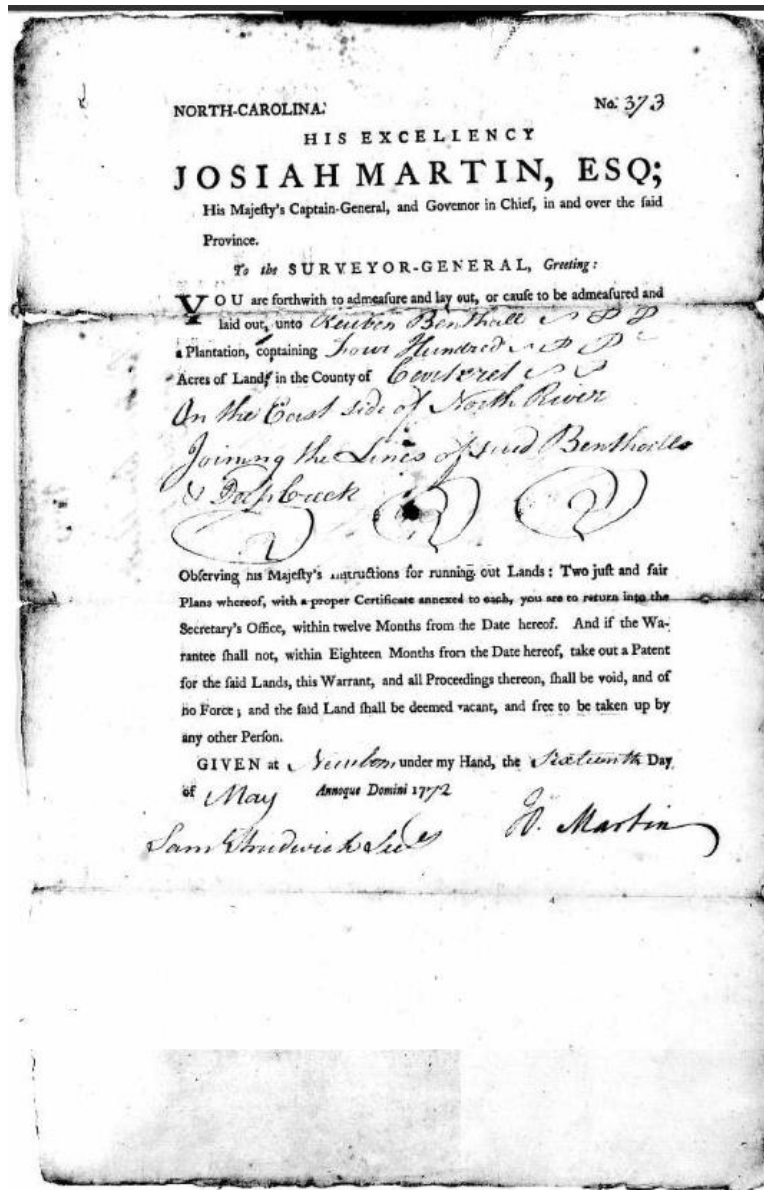 NORTH-CAROLINA. No. 373
HIS EXCELLENCY
JOSIAH MARTIN, ESQ;
His Majesty's Captain-General, and Governor in Chief, in and over the said
Province.
To the SURVEYOR-GENERAL, Greeting:
YOU are forthwith to admeasure and lay out, or cause to be admeasured and
laid out, unto Reuben Benthall
a Plantation, containing Four Hundred
Acres of Land, in the County of Carteret
On the East side of North River
Joining the Lines of said Benthalls
& Deep Creek
Observing his Majesty's Instructions for running out Lands: Two just and fair
Plans whereof, with a proper Certificate annexed to each, you are to return into the
Secretary's Office, within twelve Months from the Date hereof. And if the Wa-
rantee shall not, within Eighteen Months from the Date hereof, take out a Patent
for the said Lands, this Warrant, and all Proceedings thereon, shall be void, and of
no Force; and the said Land shall be deemed vacant, and free to be taken up by
any other Person.
GIVEN at Newbern under my Hand, the Sixteenth Day
of May Annoque Domini 1772
Jo. Martin
Sam Strudwick Secy